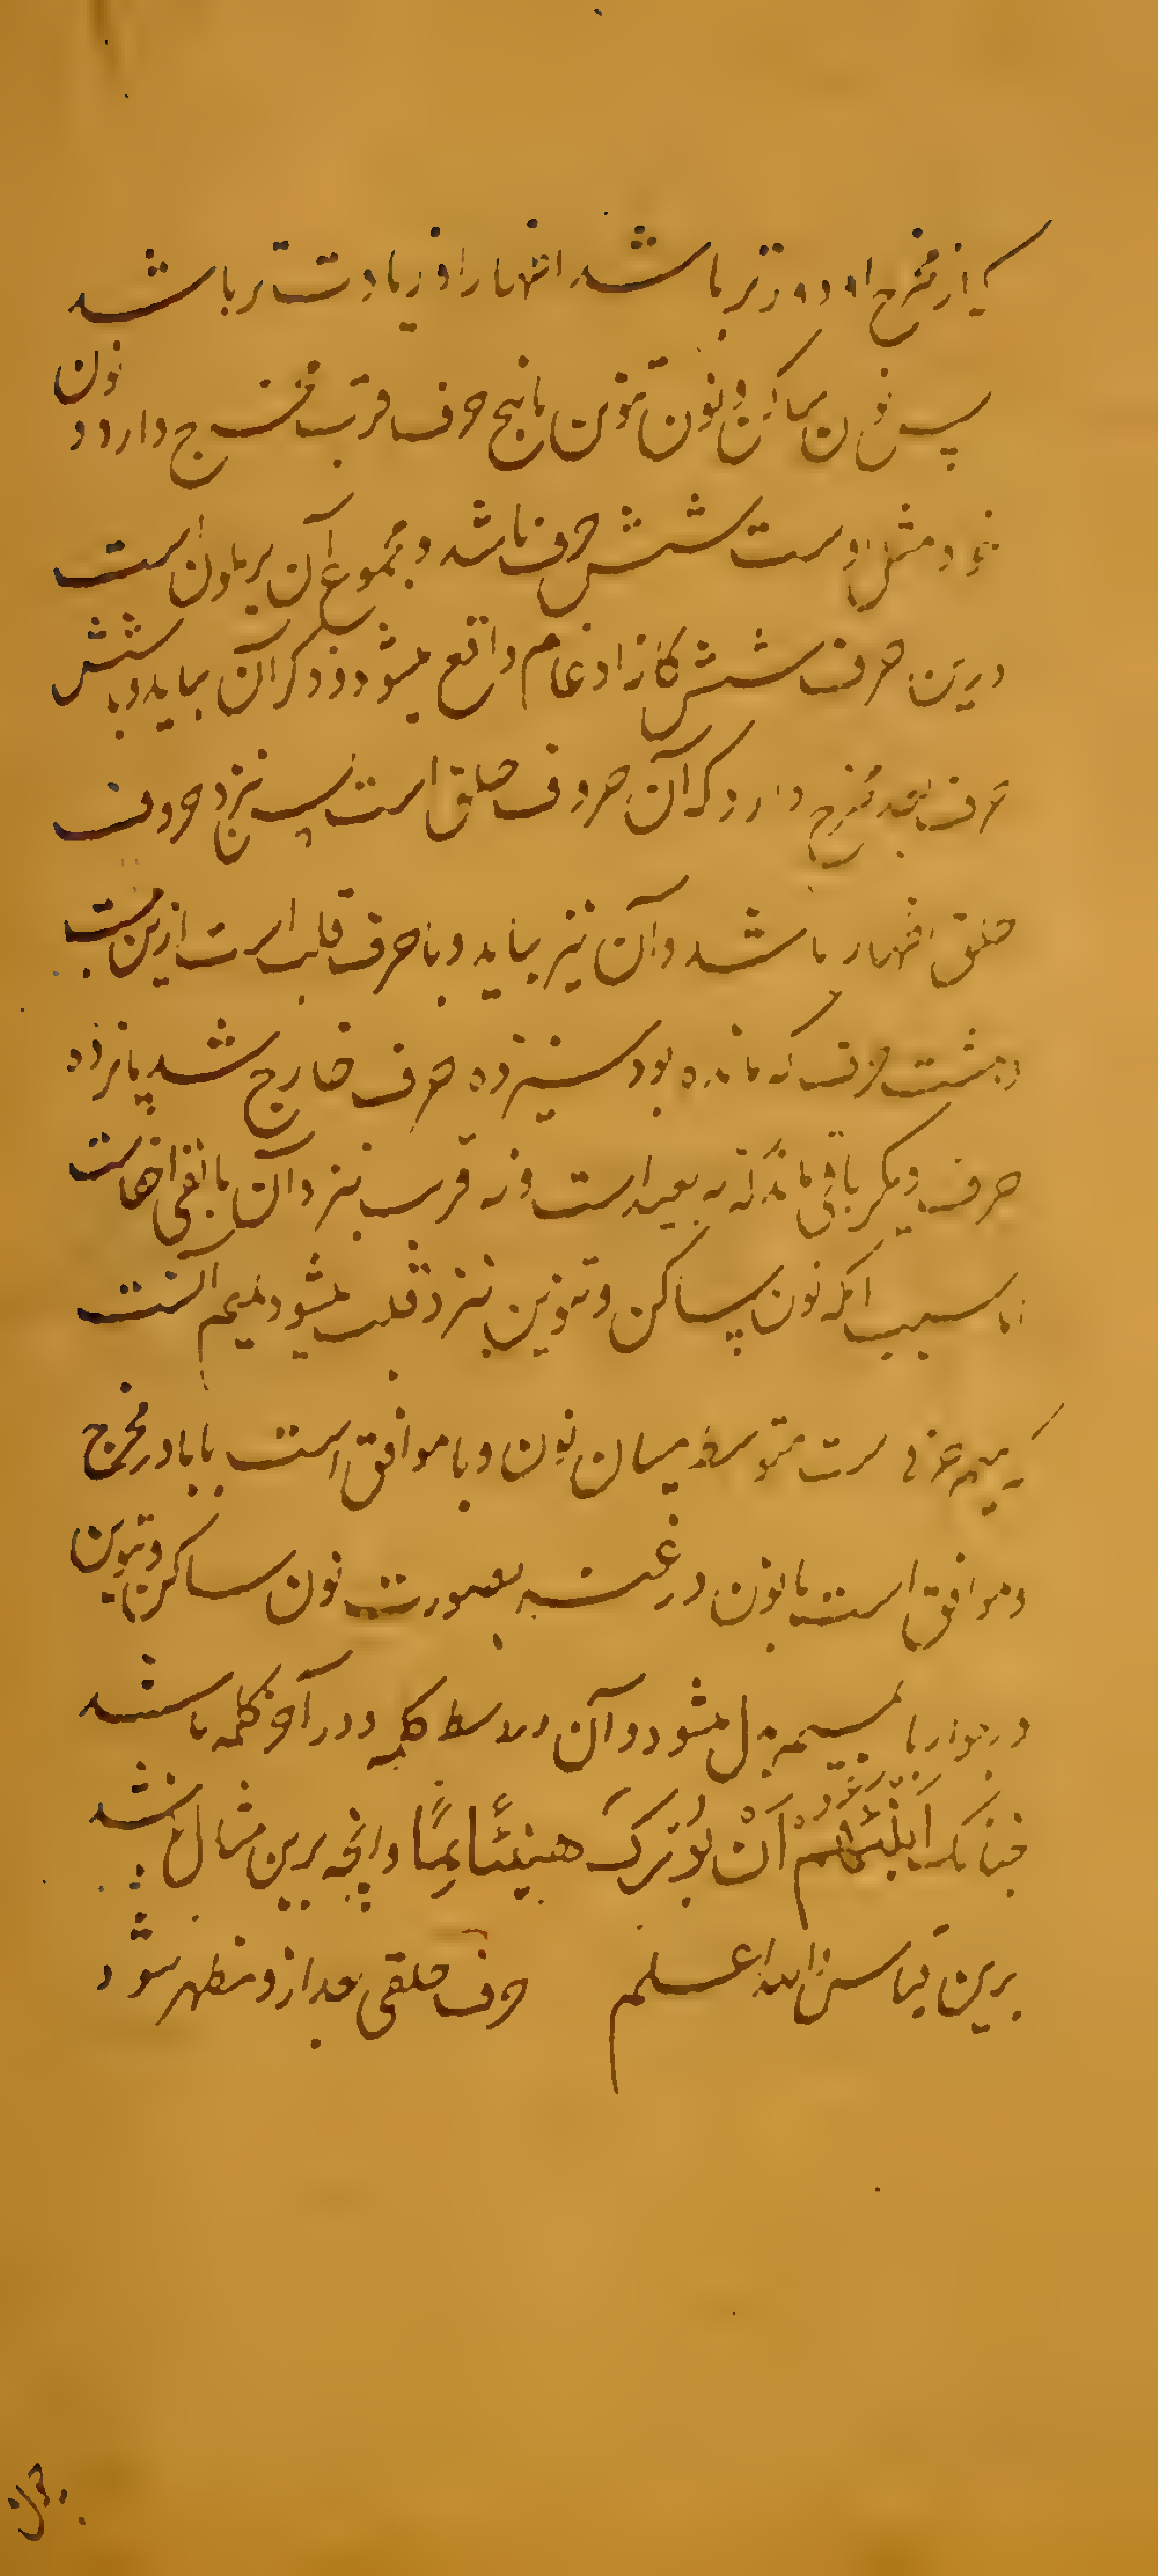 که از مخرج او دورتر باشد اظهار او زیادت‌تر باشد
پس نون ساکن و نون تنوین با پنج حرف قرب مخرج دارد و نون
خود مثل اوست شش حرف باشد و مجموع آن یرملون است
درین حرف شش‌کانه ادغام واقع میشود و ذکر آن بیاید و با شش
حرف بعد مخرج دارد که آن حروف حلق است پس نزد حروف
حلق اظهار باشد و آن نیز بیاید و با حرف قلب است ازین بیست
و هشت حرف که مانده بود سیزده حرف خارج شد پانزده
حرف دیگر باقی ماند که نه بعید است و نه قریب نزد آن مابقی اخفاست
اما سبب آنکه نون ساکن و تنوین نزد قلب میشود بمیم آنست
که میم حرفی ست متوسط میان نون و با موافق است با با در مخرج
و موافق است با نون در غنه بصورت نون ساکن و تنوین
در جوار با بمیم بدل میشود و آن در وسط کلمه و در آخر کلمه باشد
چنانکه اَنْبِئْهُمْ اَنْ بُوْرِکَ هنیئًا بِمَا و انچه برین مثال باشد
برین قیاس والله اعلم حرف حلقی بعد ازو مظهر شود
چون